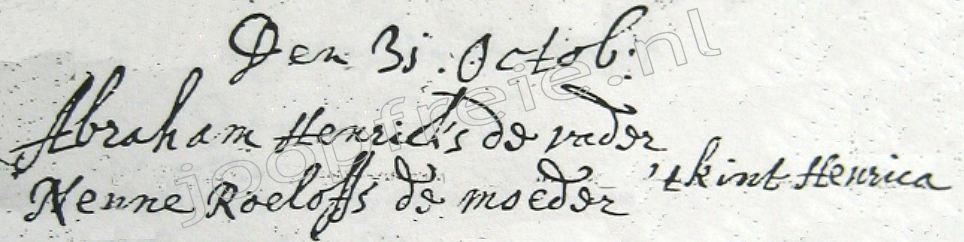 Den 31. Octob:
Abraham Henrick's de vader
Nenne Roeloffs de moeder 't kint Henrica
joopfreie.nl